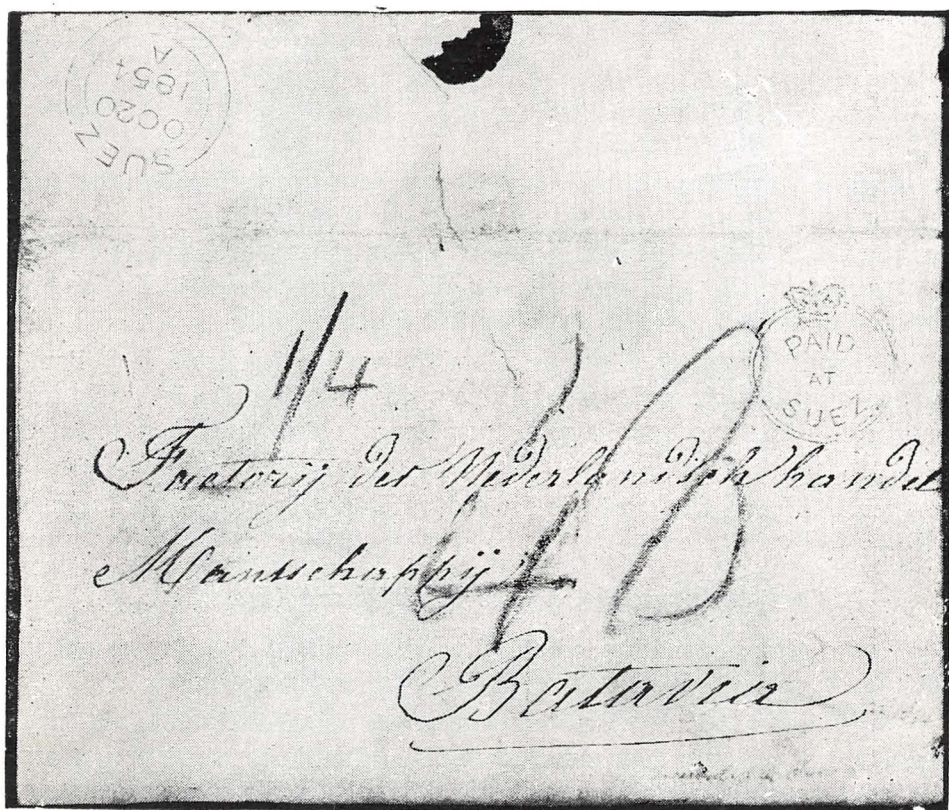 SUEZ
OC 20
1854
A
PAID
AT
SUEZ
1/4
40
Factorÿ der Nederlandsch handel
Maatschappÿ
Batavia